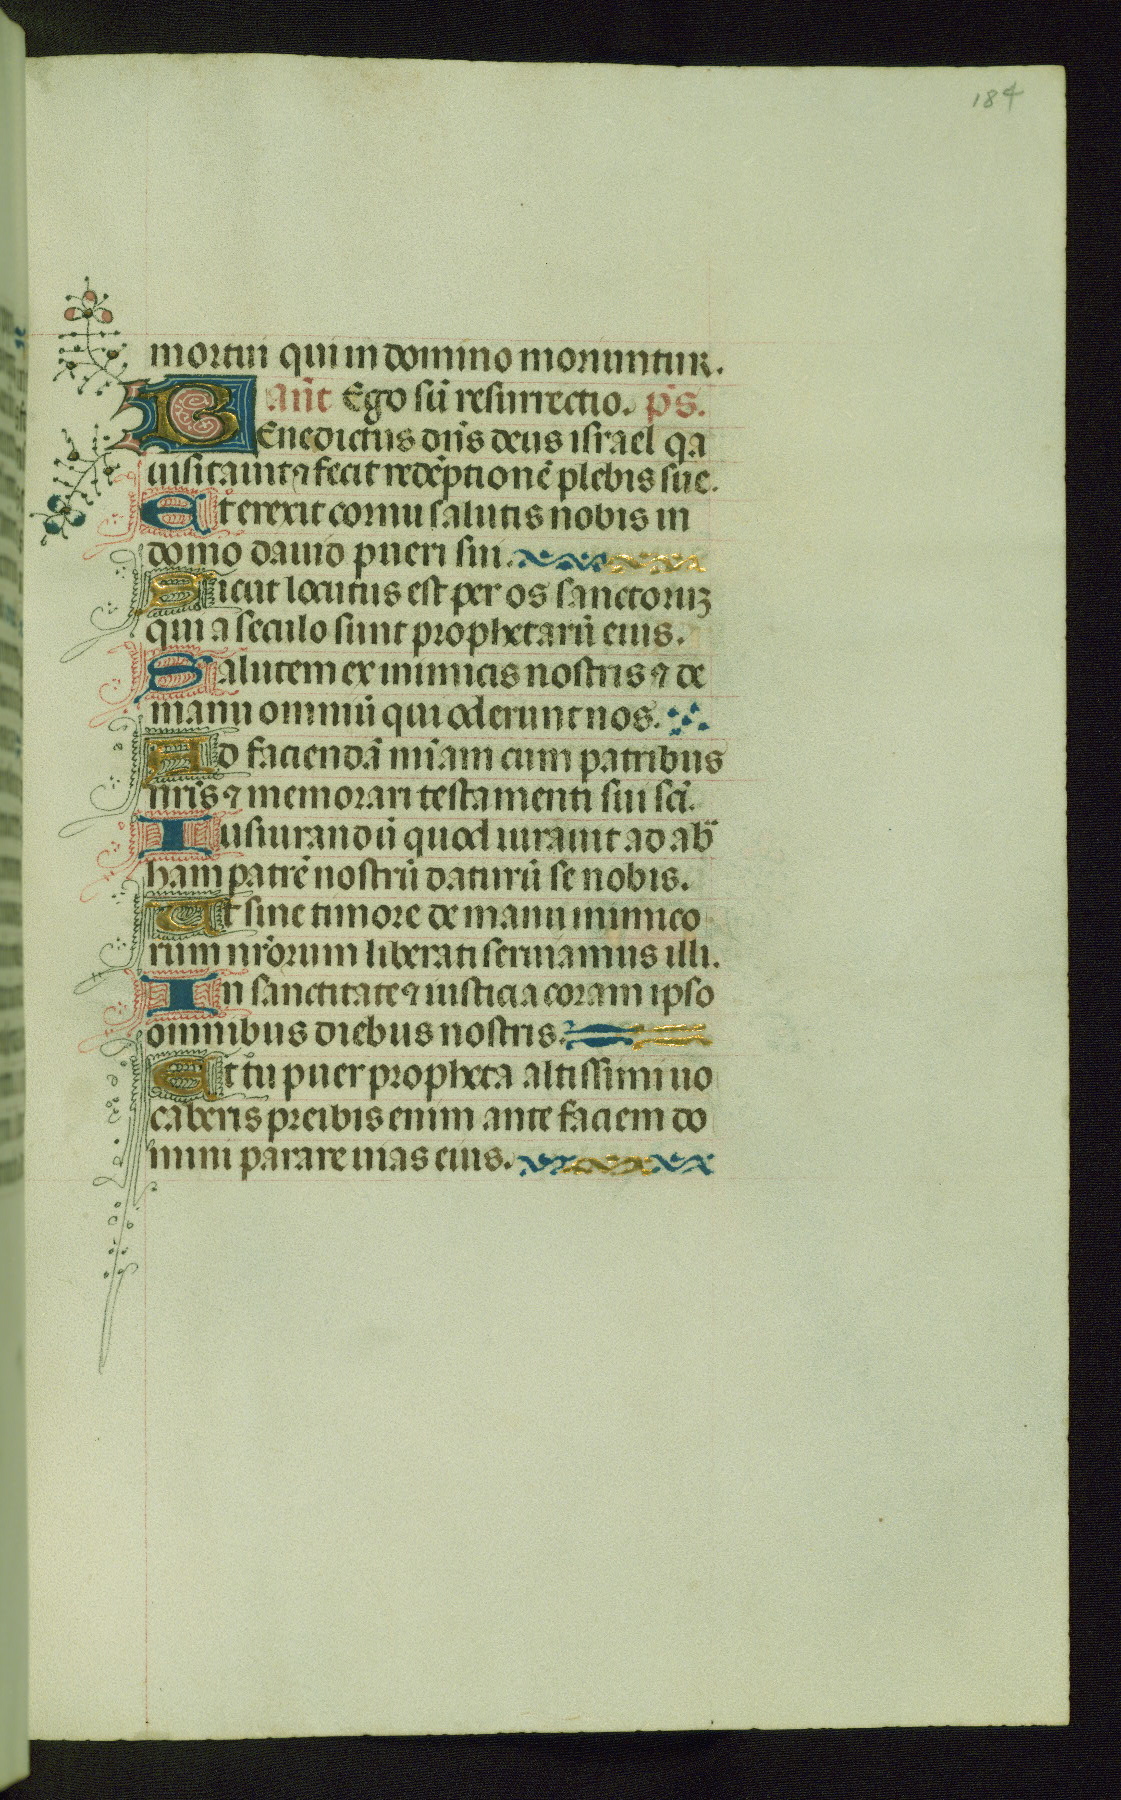 184
mortui qui in domino moriuntur.
Añt Ego sū resurrectio. ps.
Benedictus dñs deus israel qa
uisitauit ⁊ fecit redēptionē plebis sue.
Et erexit cornu salutis nobis in
domo dauid pueri sui.
Sicut locutus est per os sanctoruꝫ
qui a seculo sunt prophetarū eius.
Salutem ex inimicis nostris ⁊ de
manu omniū qui oderunt nos.
Ad faciendā mīam cum patribus
nrīs ⁊ memorari testamenti sui scī.
Iusiurandū quod iurauit ad ab
ham patrē nostrū daturū se nobis.
Ut sine timore de manu inimico
rum nrōrum liberati seruiamus illi.
In sanctitate ⁊ iusticia coram ipso
omnibus diebus nostris.
Et tu puer propheta altissimi uo
caberis preibis enim ante faciem do
mini parare uias eius.